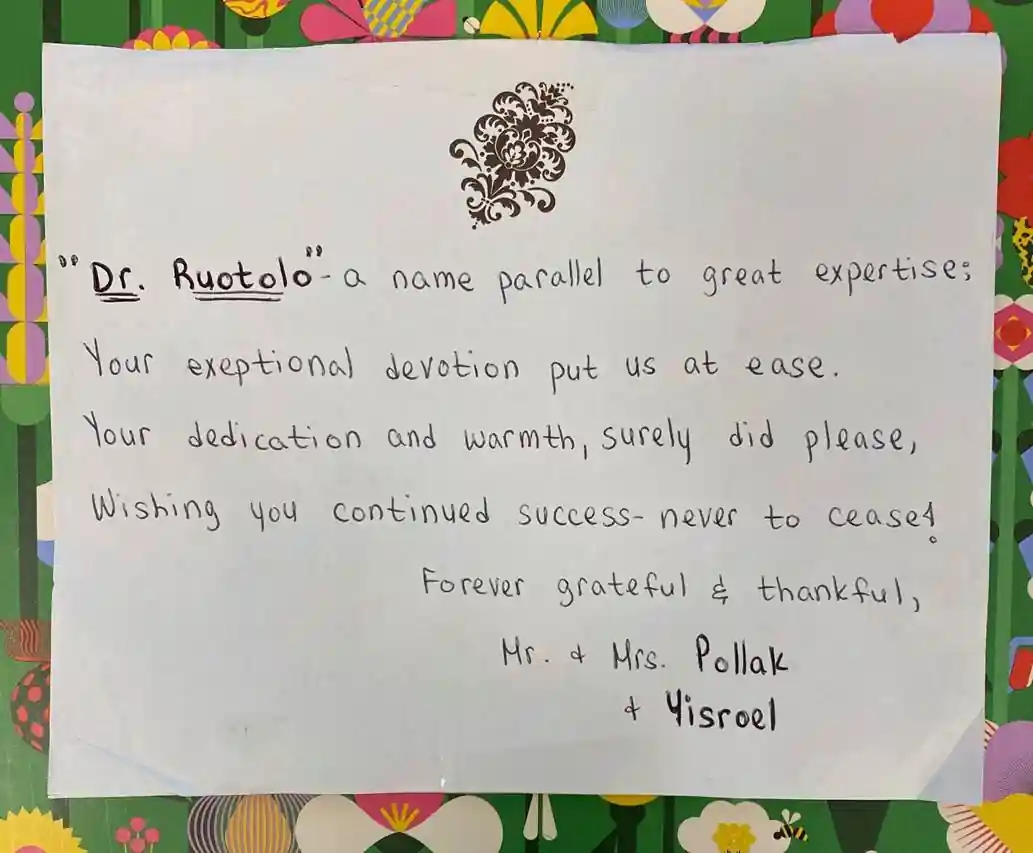 "Dr. Ruotolo" - a name parallel to great expertise;
Your exeptional devotion put us at ease.
Your dedication and warmth, surely did please,
Wishing you continued success- never to cease!
Forever grateful & thankful,
Mr. & Mrs. Pollak
& Yisroel